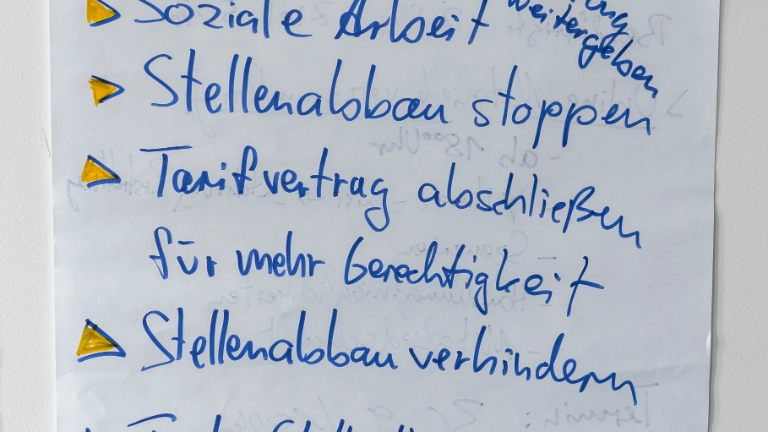 Soziale Arbeit
weitergeben
Stellenabbau stoppen
Tarifvertrag abschließen
für mehr Gerechtigkeit
Stellenabbau verhindern